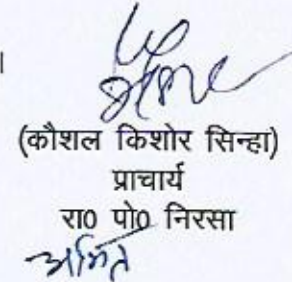 ।
(कौशल किशोर सिन्हा)
प्राचार्य
रा0 पो0 निरसा
अमित